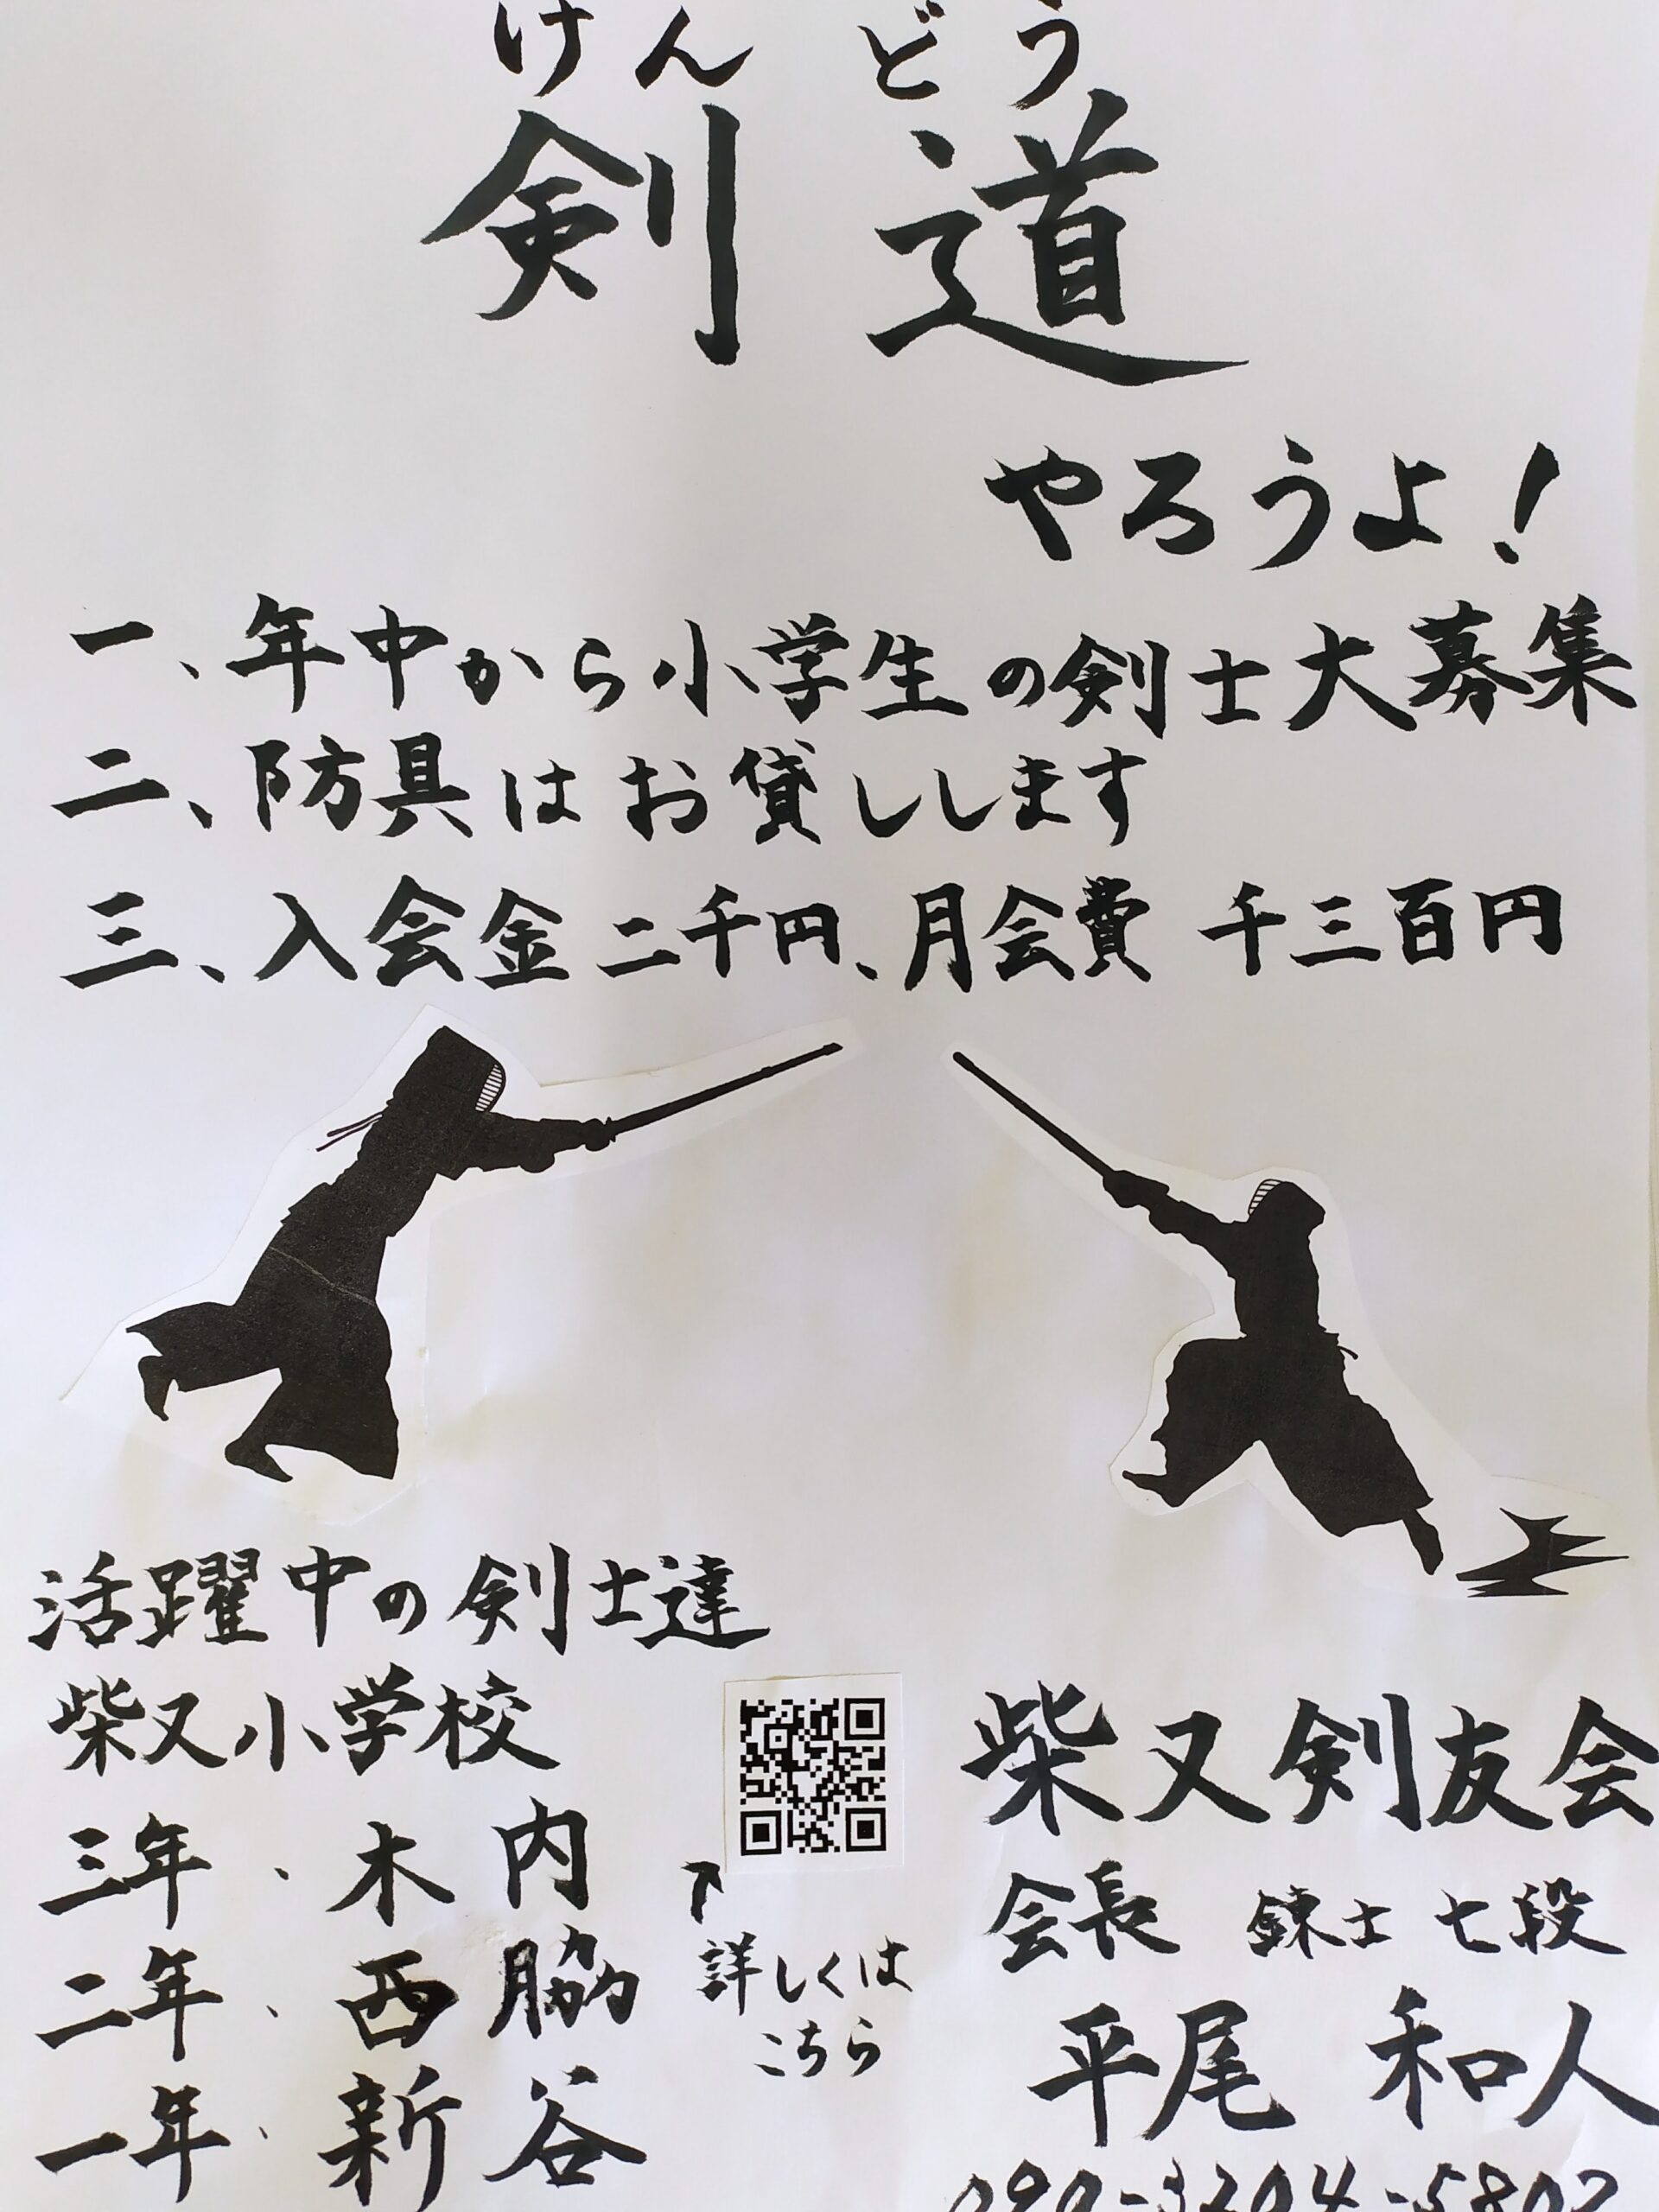 けんどう
剣道
やろうよ!
一、年中から小学生の剣士大募集
二、防具はお貸しします
三、入会金 二千円、月会費 千三百円
活躍中の剣士達
柴又小学校
三年・木内
二年・西脇
一年・新谷
詳しくは
こちら
柴又剣友会
会長 錬士 七段
平尾 和人
090-3204-5802